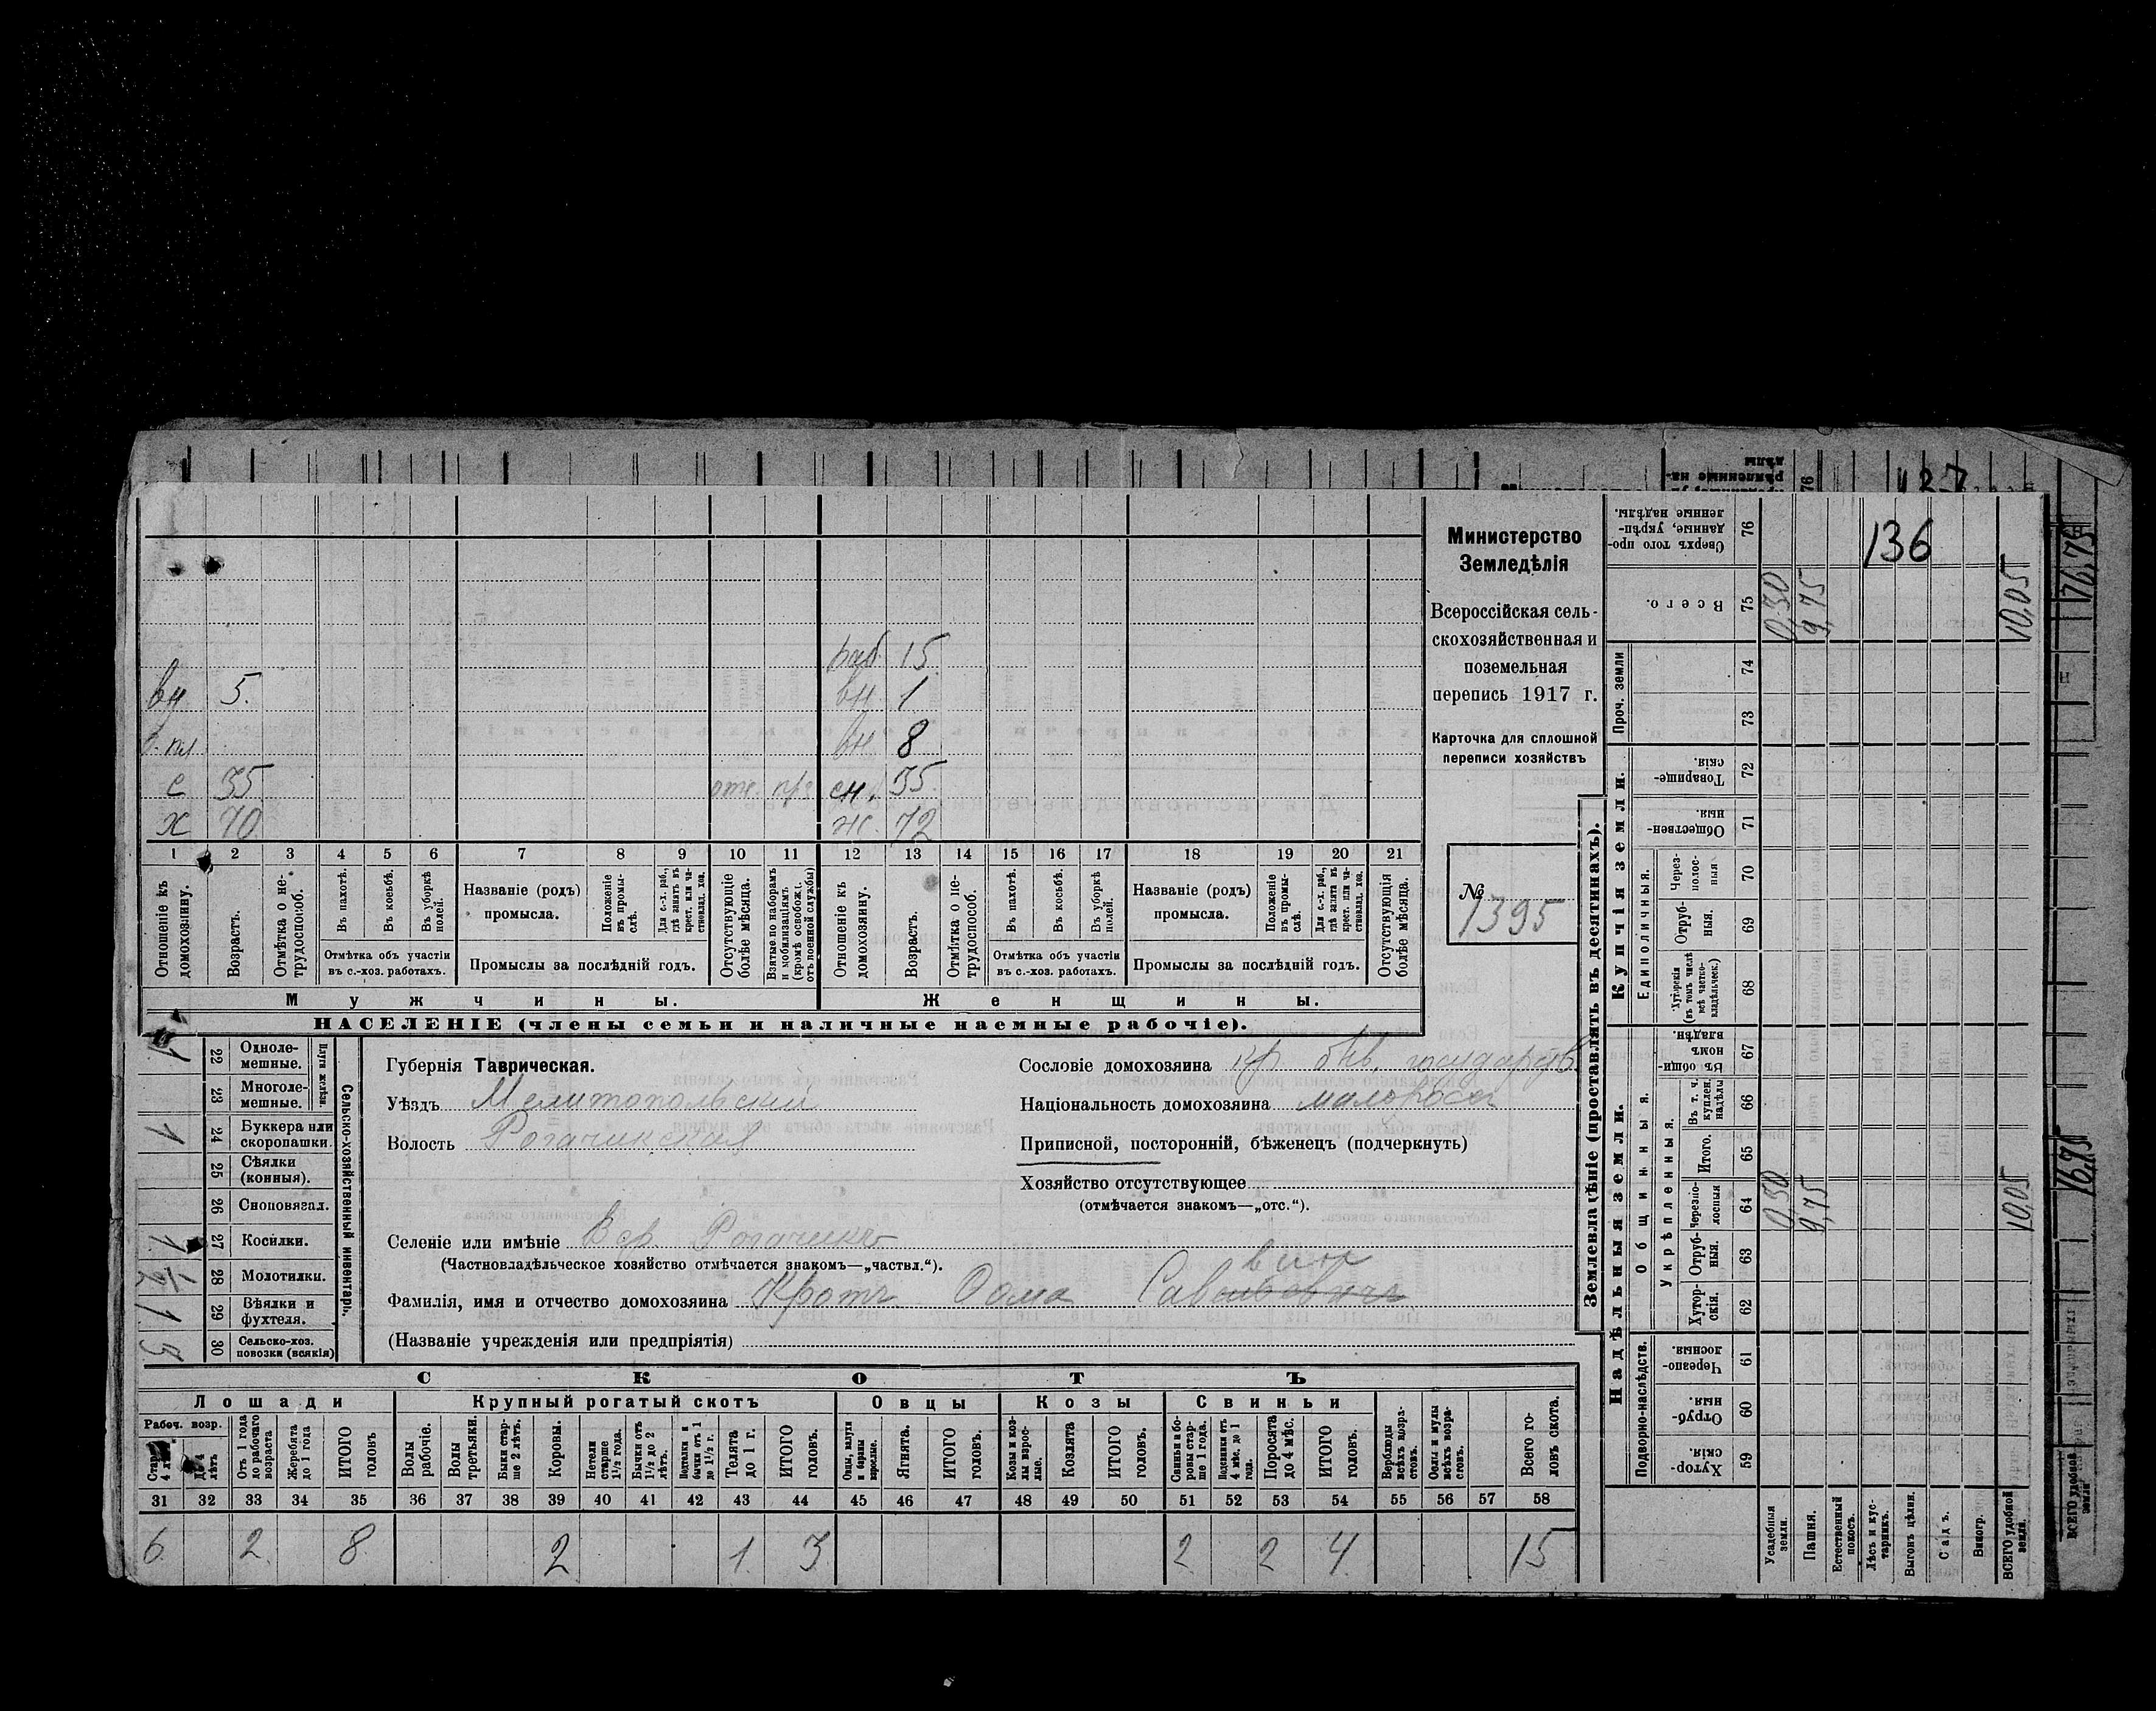 136
Министерство
Земледѣлія
Всероссійская сель-
скохозяйственная и
поземельная
перепись 1917 г.
Карточка для сплошной
переписи хозяйствъ
№
1395
раб 15
вн 5. вн. 1
вн 8
с 35 отс. сн. 35
х 70 ж. 72
1 2 3 4 5 6 7 8 9 10 11 12 13 14 15 16 17 18 19 20 21
Отношеніе къ домохозяину.
Возрастъ.
Отмѣтка о не-трудоспособ.
Въ пахотѣ.
Въ косьбѣ.
Въ уборкѣ полей.
Отмѣтка объ участіи
въ с.-хоз. работахъ.
Названіе (родъ)
промысла.
Положеніе въ промы-слѣ.
Для с.-х. раб., гдѣ занятъ въ крест. или ча-стновлад. хоз.
Промыслы за послѣдній годъ.
Отсутствующіе болѣе мѣсяца.
Взятые по наборамъ и мобилизаціямъ (кромѣ освобож. отъ военной службы)
Отношеніе къ домохозяину.
Возрастъ.
Отмѣтка о не-трудоспособ.
Въ пахотѣ.
Въ косьбѣ.
Въ уборкѣ полей.
Отмѣтка объ участіи
въ с.-хоз. работахъ.
Названіе (родъ)
промысла.
Положеніе въ промы-слѣ.
Для с.-х. раб., гдѣ занята въ крест. или ча-стновлад. хоз.
Промыслы за послѣдній годъ.
Отсутствующія болѣе мѣсяца.
Мужчины. Женщины.
НАСЕЛЕНІЕ (члены семьи и наличные наемные рабочіе).
Сельско-хозяйственный инвентарь.
Плуги желѣзн.
1 22 Одноле-мешные.
23 Многоле-мешные.
1 24 Буккера или скоропашки.
25 Сѣялки (конныя).
26 Сноповязал.
1 27 Косилки.
1/2 28 Молотилки.
1 29 Вѣялки и фухтеля.
3 30 Сельско-хоз. повозки (всякія)
Губернія Таврическая.
Уѣздъ Мелитопольскій
Волость Рогачикская
Селеніе или имѣніе Вер. Рогачикъ
(Частновладѣльческое хозяйство отмѣчается знакомъ—„частвл.“).
Фамилія, имя и отчество домохозяина Кротъ Ѳома Сав
вич
(Названіе учрежденія или предпріятія)
Сословіе домохозяина кр. быв. государств.
Національность домохозяина малоросс
Приписной, посторонній, бѣженец (подчеркнуть)
Хозяйство отсутствующее
(отмѣчается знакомъ—„отс.“).
СКОТЪ
Лошади Крупный рогатый скотъ Овцы Козы Свиньи
Рабоч. возр.
До 4 лѣтъ
Отъ 1 года до рабочаго возраста
Жеребята до 1 года
ИТОГО головъ
Волы рабочіе.
Волы третьяки.
Быки стар-ше 2 лѣтъ.
Коровы.
Нетели старше 1½ года.
Бычки отъ 1½ до 2 лѣтъ.
Подтелки и бычки отъ 1 до 1½ г.
Телята до 1 г.
ИТОГО головъ.
Овцы, валухи и бараны взрослые.
Ягнята.
ИТОГО головъ.
Козы и коз-лы взрос-лые.
Козлята
ИТОГО головъ.
Свиньи и бо-ровы стар-ше 1 года.
Подсвинки отъ 4 мѣс. до 1 года.
Поросята до 4 мѣс.
ИТОГО головъ.
Верблюды всѣхъ возра-стовъ.
Ослы и мулы всѣхъ возра-стовъ.
Всего го-ловъ скота.
31 32 33 34 35 36 37 38 39 40 41 42 43 44 45 46 47 48 49 50 51 52 53 54 55 56 57 58
6 2 8 2 1 3 2 2 4 15
Землевладѣніе (проставлять въ десятинахъ).
Надѣльныя земли.
Купчія земли.
Проч. земли
Подворно-наслѣдств.
Общинныя.
Укрѣпленныя.
Единоличныя.
Сверхъ того про-данные, укрѣп-ленные надѣлы. 76
Всего. 75 0,30 9,75 10,05
74
73
Товарище-скія. 72
Обществен-ныя. 71
Через-полос-ныя 70
Отруб-ныя. 69
Хуторскія (въ томъ числѣ всѣ частно-владѣльческ.) 68
Въ общи-номъ владѣн. 67
Въ т. ч. куплен. надѣлы 66
Итого. 65
Черезпо-лосныя 64 0,30 9,75 10,05
Отруб-ныя. 63
Хутор-скія. 62
Черезпо-лосныя. 61
Отруб-ныя. 60
Хутор-скія. 59
Усадебныя земли.
Пашня.
Естественный покосъ.
Лѣсъ и кус-тарник.
Выгонъ цѣлин.
Садъ.
Виногр.
ВСЕГО удобной земли.
ВСЕГО удобной земли
16,75
16,75